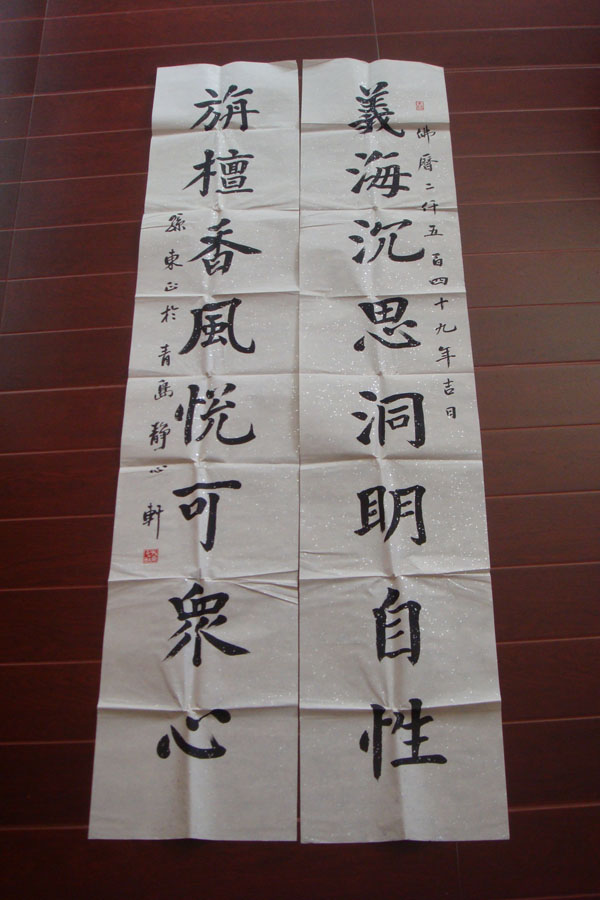 佛曆二仟五百四十九年吉日
義海沉思洞明自性
旃檀香風悅可眾心
孫東正於青島靜心軒